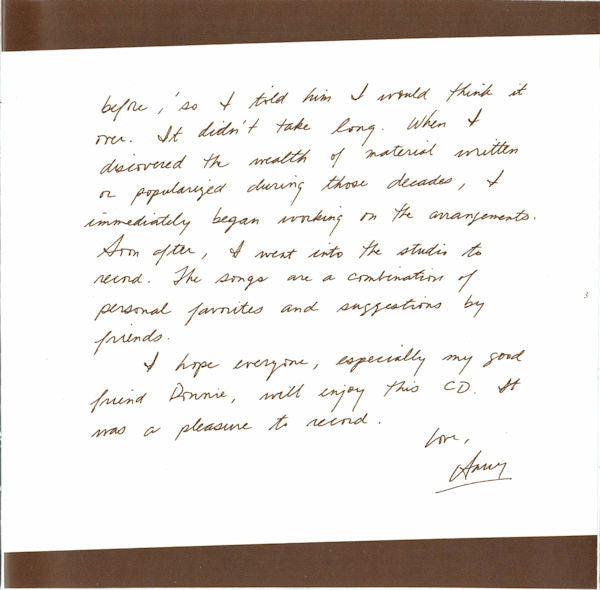 before, so I told him I would think it
over. It didn't take long. When I
discovered the wealth of material written
or popularized during those decades, I
immediately began working on the arrangements.
Soon after, I went into the studio to
record. The songs are a combination of
personal favorites and suggestions by
friends.
I hope everyone, especially my good
friend Donnie, will enjoy this CD. It
was a pleasure to record.
Love,
3